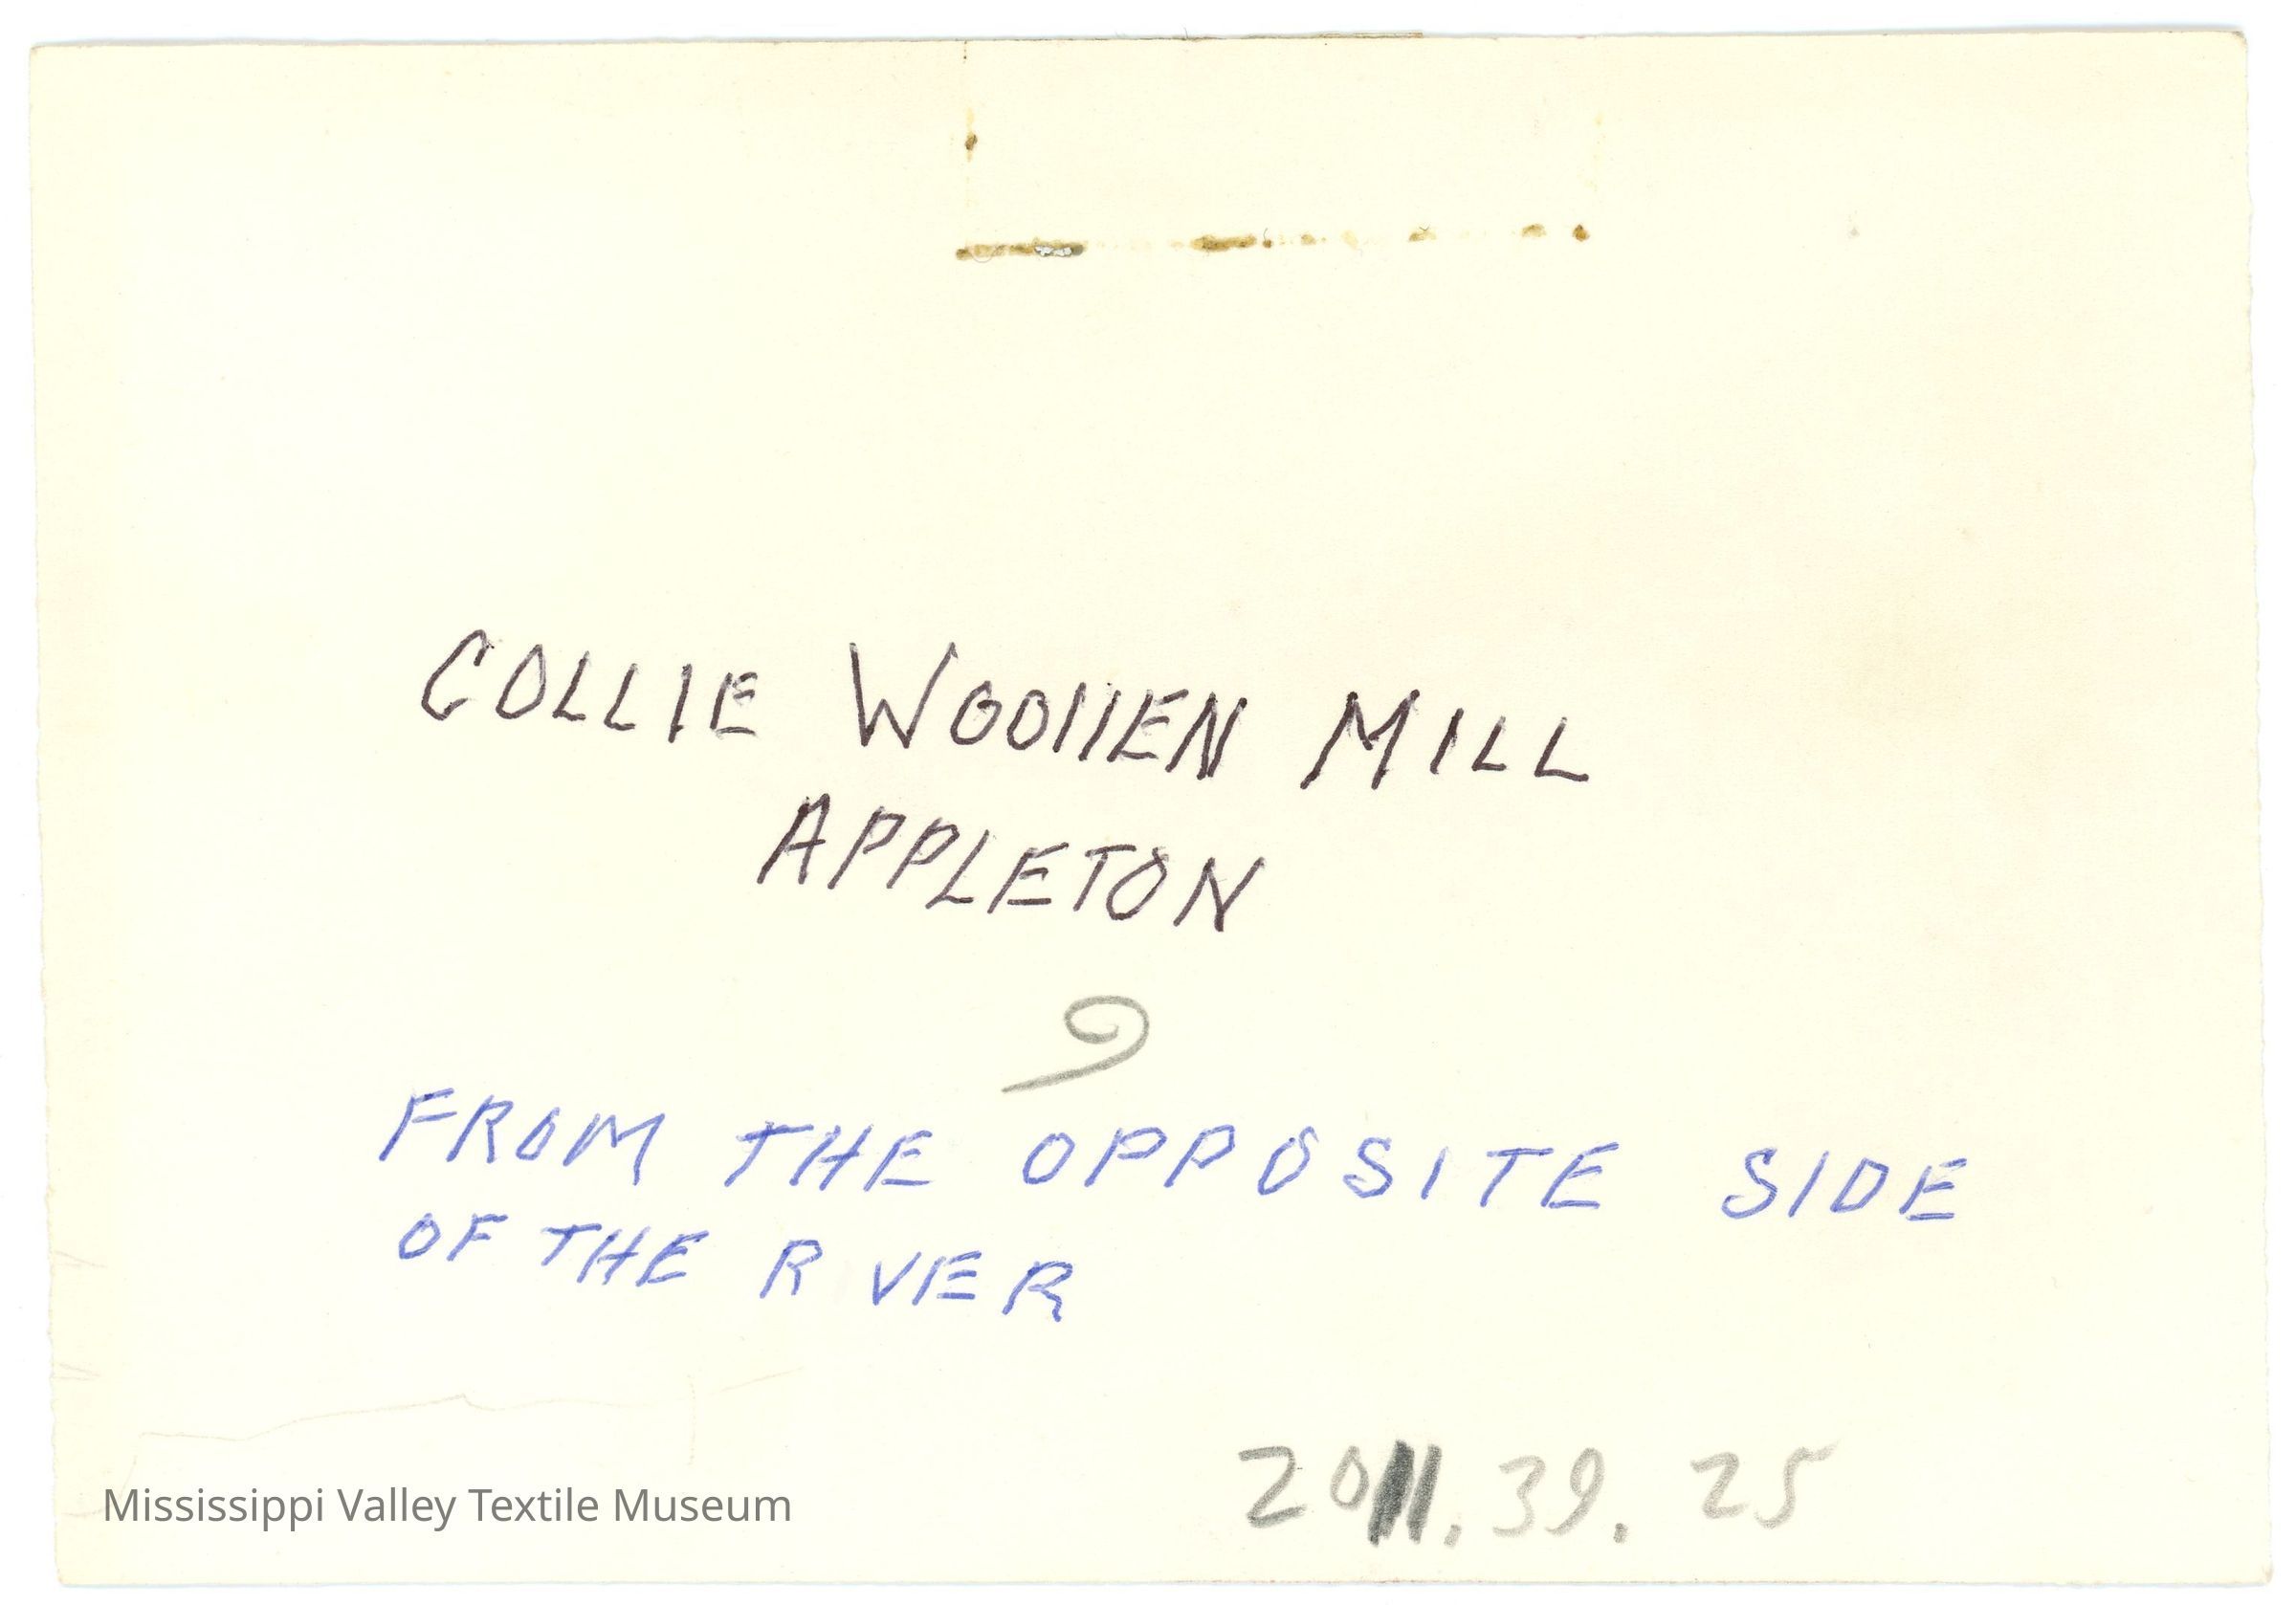 COLLIE WOOllEN MILL
APPLETON
9
FROM THE OPPOSITE SIDE
OF THE R VER
2011.39.25
Mississippi Valley Textile Museum